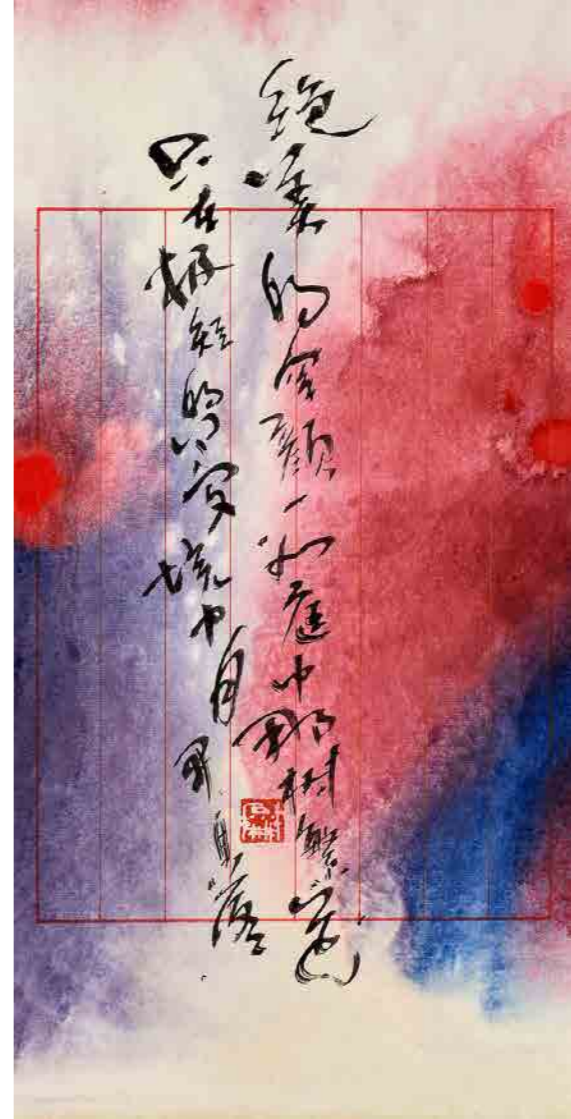 絕美的容顏一如庭中那樹繁花
只在極短的夢境中自開自落